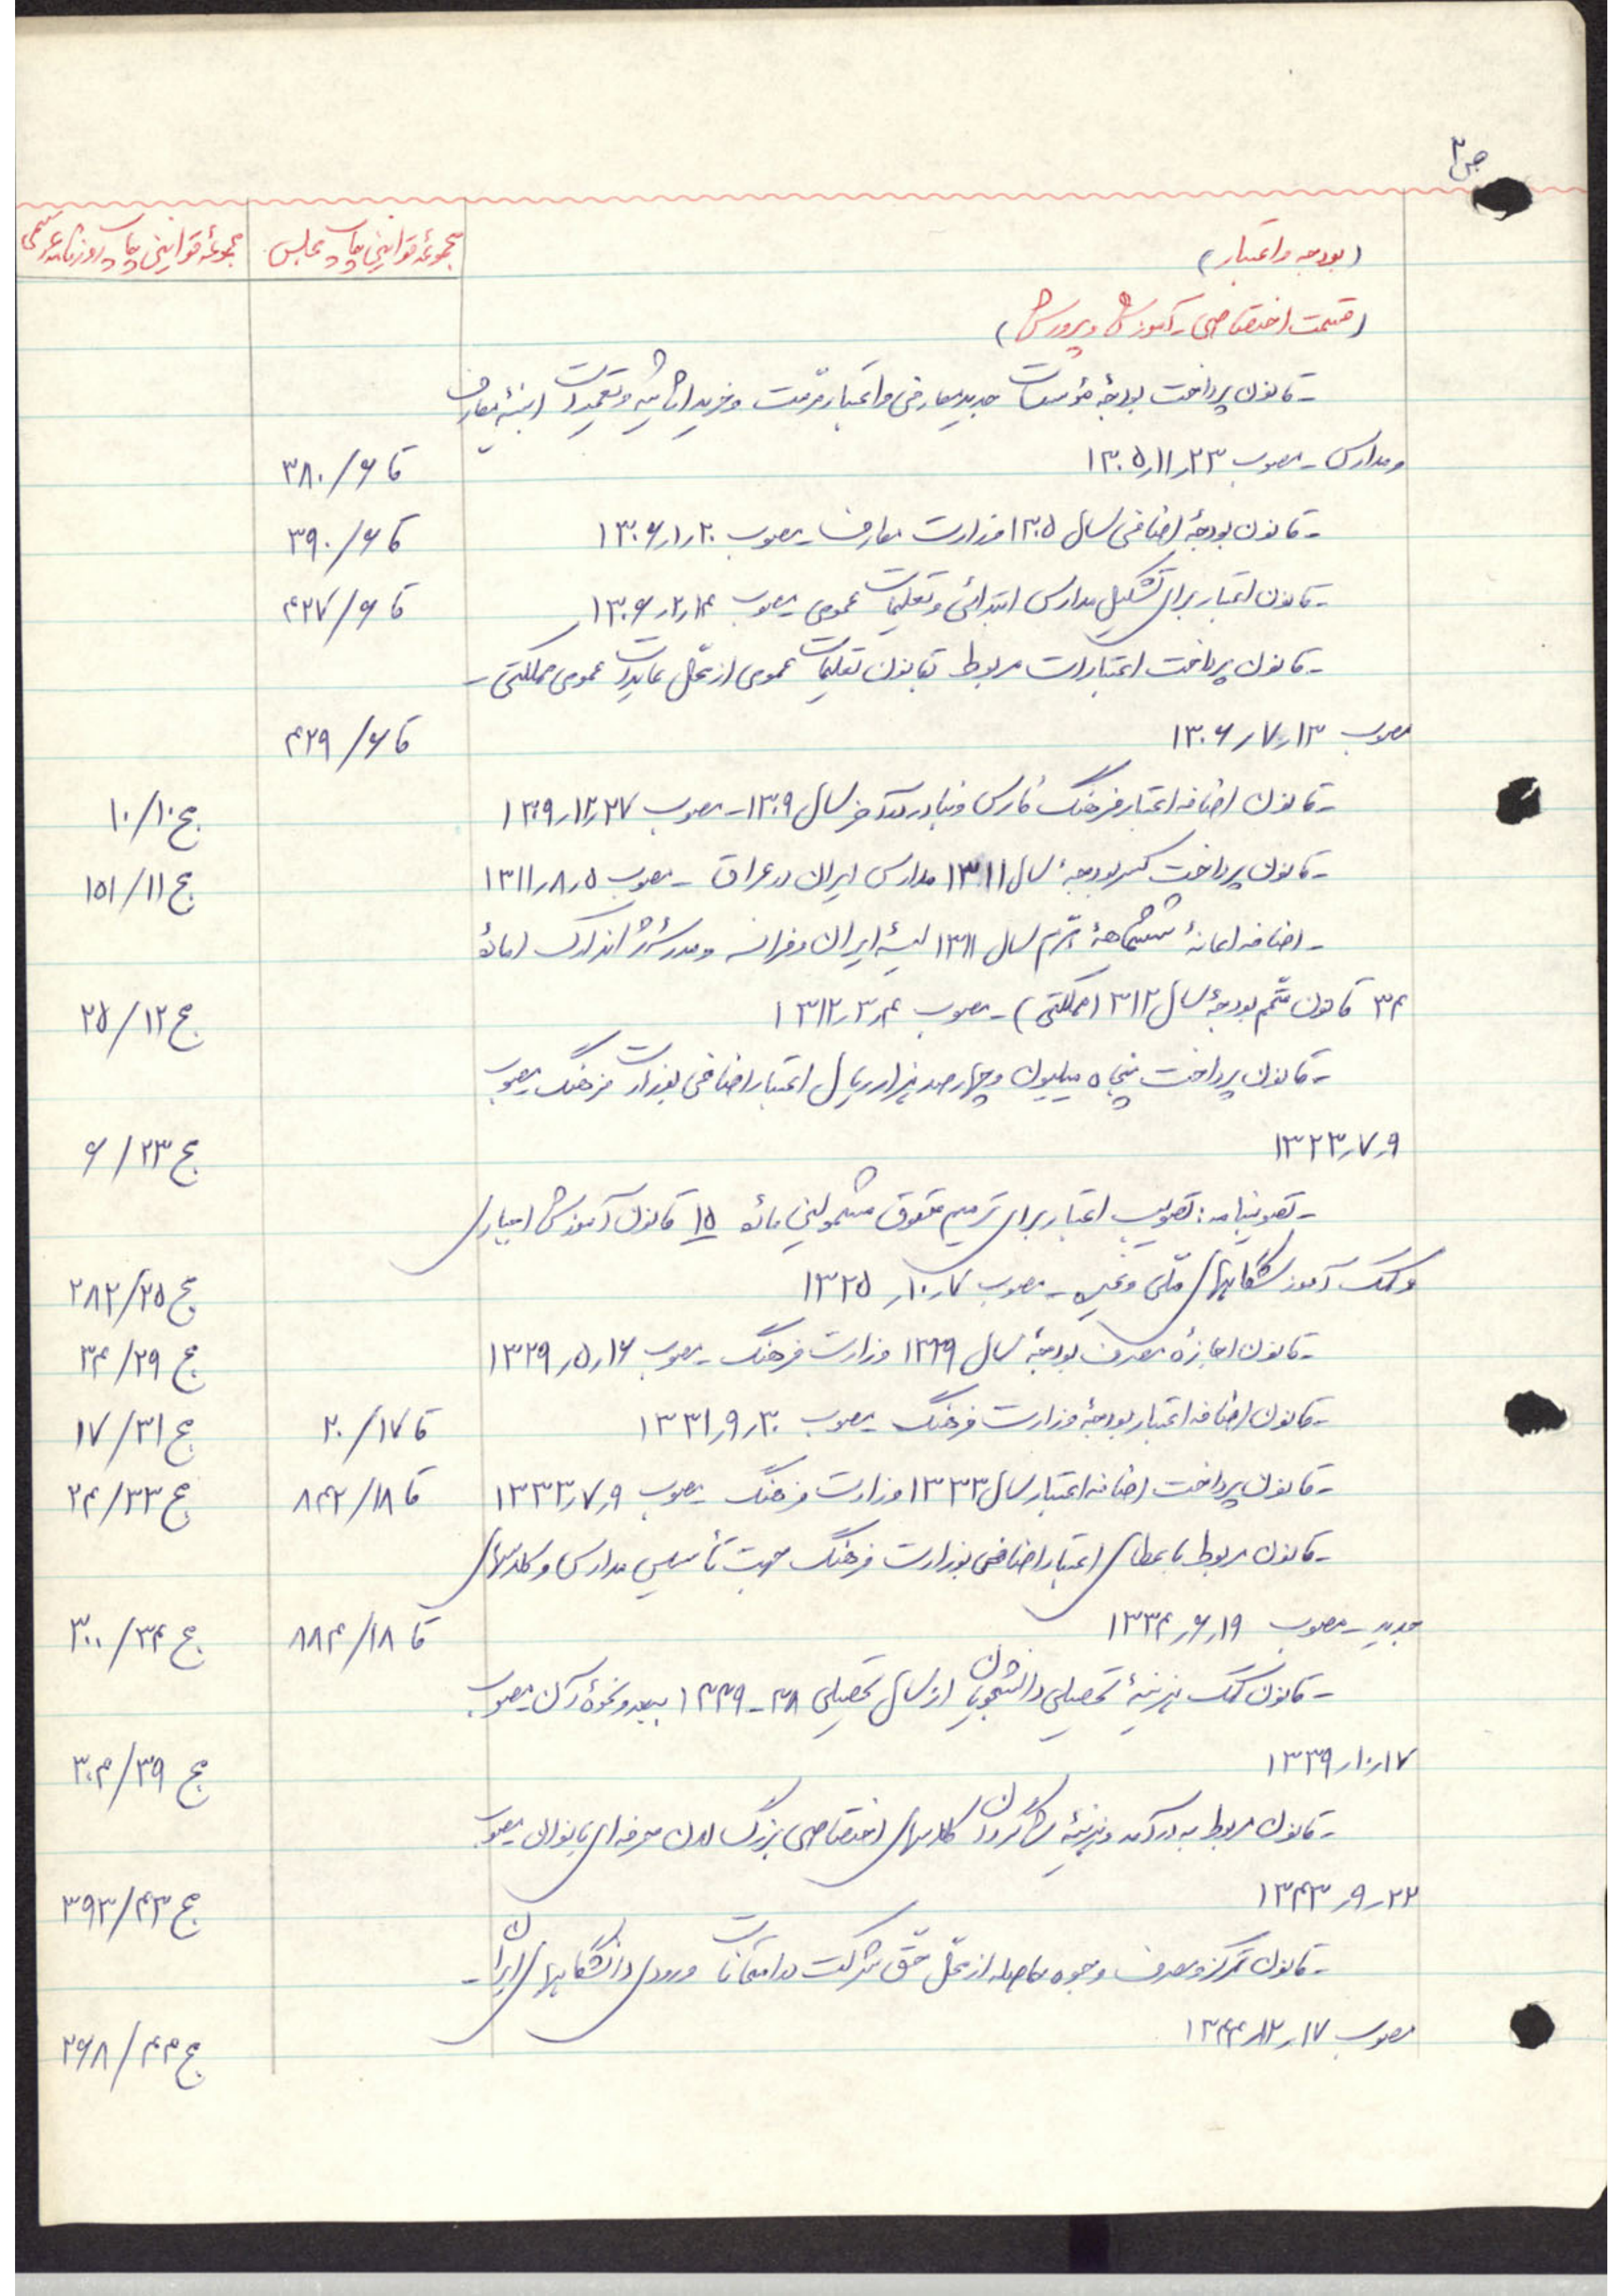 ص۳
(بودجه و اعتبار) مجموعهٔ قوانین چاپ مجلس مجموعهٔ قوانین چاپ روزنامه رسمی
(قسمت اختصاصی - آموزش و پرورش)
- قانون پرداخت بودجهٔ مؤسسات جدید معارفی و اعتبار مرمت و خرید اثاثیه و تعمیرات ابنیهٔ معارف
و مدارس - مصوب ۲۳ر۱۱ر۱۳۰۵ قا ۶/ ۳۸۰
- قانون بودجهٔ اضافی سال ۱۳۰۵ وزارت معارف - مصوب ۲۰ر۱ر۱۳۰۶ قا ۶/ ۳۹۰
- قانون اعتبار برای تشکیل مدارس ابتدائی و تعلیمات عمومی مصوب ۱۴ر۲ر۱۳۰۶ قا ۶/ ۴۲۷
- قانون پرداخت اعتبارات مربوط بقانون تعلیمات عمومی از محل عایدات عمومی مملکتی -
مصوب ۱۳ر۷ر۱۳۰۶ قا ۶/ ۴۲۹
- قانون اضافه اعتبار فرهنگ فارس و بنادر تا آخر سال ۱۳۰۹ - مصوب ۲۷ر۱۲ر۱۳۰۹ مج ۱۰/ ۱۰
- قانون پرداخت کسر بودجهٔ سال ۱۳۱۱ مدارس ایران در عراق - مصوب ۵ر۸ر۱۳۱۱ مج ۱۱/ ۱۵۱
- اضافه اعانهٔ ششماههٔ دوم سال ۱۳۱۱ لیسهٔ ایران و فرانسه و مدرسهٔ ژاندارک (مادهٔ
۳۴ قانون متمم بودجهٔ سال ۱۳۱۲ مملکتی) - مصوب ۴ر۳ر۱۳۱۲ مج ۱۲/ ۲۵
- قانون پرداخت پنجاه میلیون و چهارصد هزار ریال اعتبار اضافی بوزارت فرهنگ مصوب
۹ر۷ر۱۳۲۳ مج ۲۳/ ۶
- تصویبنامه: تصویب اعتبار برای ترمیم حقوق مشمولین ماده ۱۵ قانون آموزش اجباری
و کمک آموزشگاههای ملی و غیره - مصوب ۷ر۱۰ر۱۳۲۵ مج ۲۵/ ۲۸۲
- قانون اجازهٔ مصرف بودجهٔ سال ۱۳۲۹ وزارت فرهنگ - مصوب ۱۶ر۵ر۱۳۲۹ مج ۲۹/ ۳۴
- قانون اضافه اعتبار بودجهٔ وزارت فرهنگ مصوب ۳۰ر۹ر۱۳۳۱ قا ۱۷/ ۲۰ مج ۳۱/ ۱۷
- قانون پرداخت اضافه اعتبار سال ۱۳۳۳ وزارت فرهنگ مصوب ۹ر۷ر۱۳۳۳ قا ۱۸/ ۸۴۲ مج ۳۳/ ۲۴
- قانون مربوط باعطای اعتبار اضافی بوزارت فرهنگ جهت تأسیس مدارس و کلاسهای
جدید - مصوب ۱۹ر۶ر۱۳۳۴ قا ۱۸/ ۸۸۴ مج ۳۴/ ۳۰۰
- قانون کمک هزینهٔ تحصیلی دانشجویان از سال تحصیلی ۳۸ - ۱۳۳۹ ببعد و نحوهٔ آن مصوب
۱۷ر۱۰ر۱۳۳۹ مج ۳۹/ ۳۰۴
- قانون مربوط به درآمد و هزینهٔ شاگردان کلاسهای اختصاصی بزرگسالان حرفه‌ای بانوان مصوب
۲۲ر۹ر۱۳۴۳ مج ۴۳/ ۳۹۳
- قانون تمرکز و مصرف وجوه حاصله از محل حق شرکت در امتحانات ورودی دانشگاههای ایران -
مصوب ۱۷ر۱۲ر۱۳۴۴ مج ۴۴/ ۲۶۸